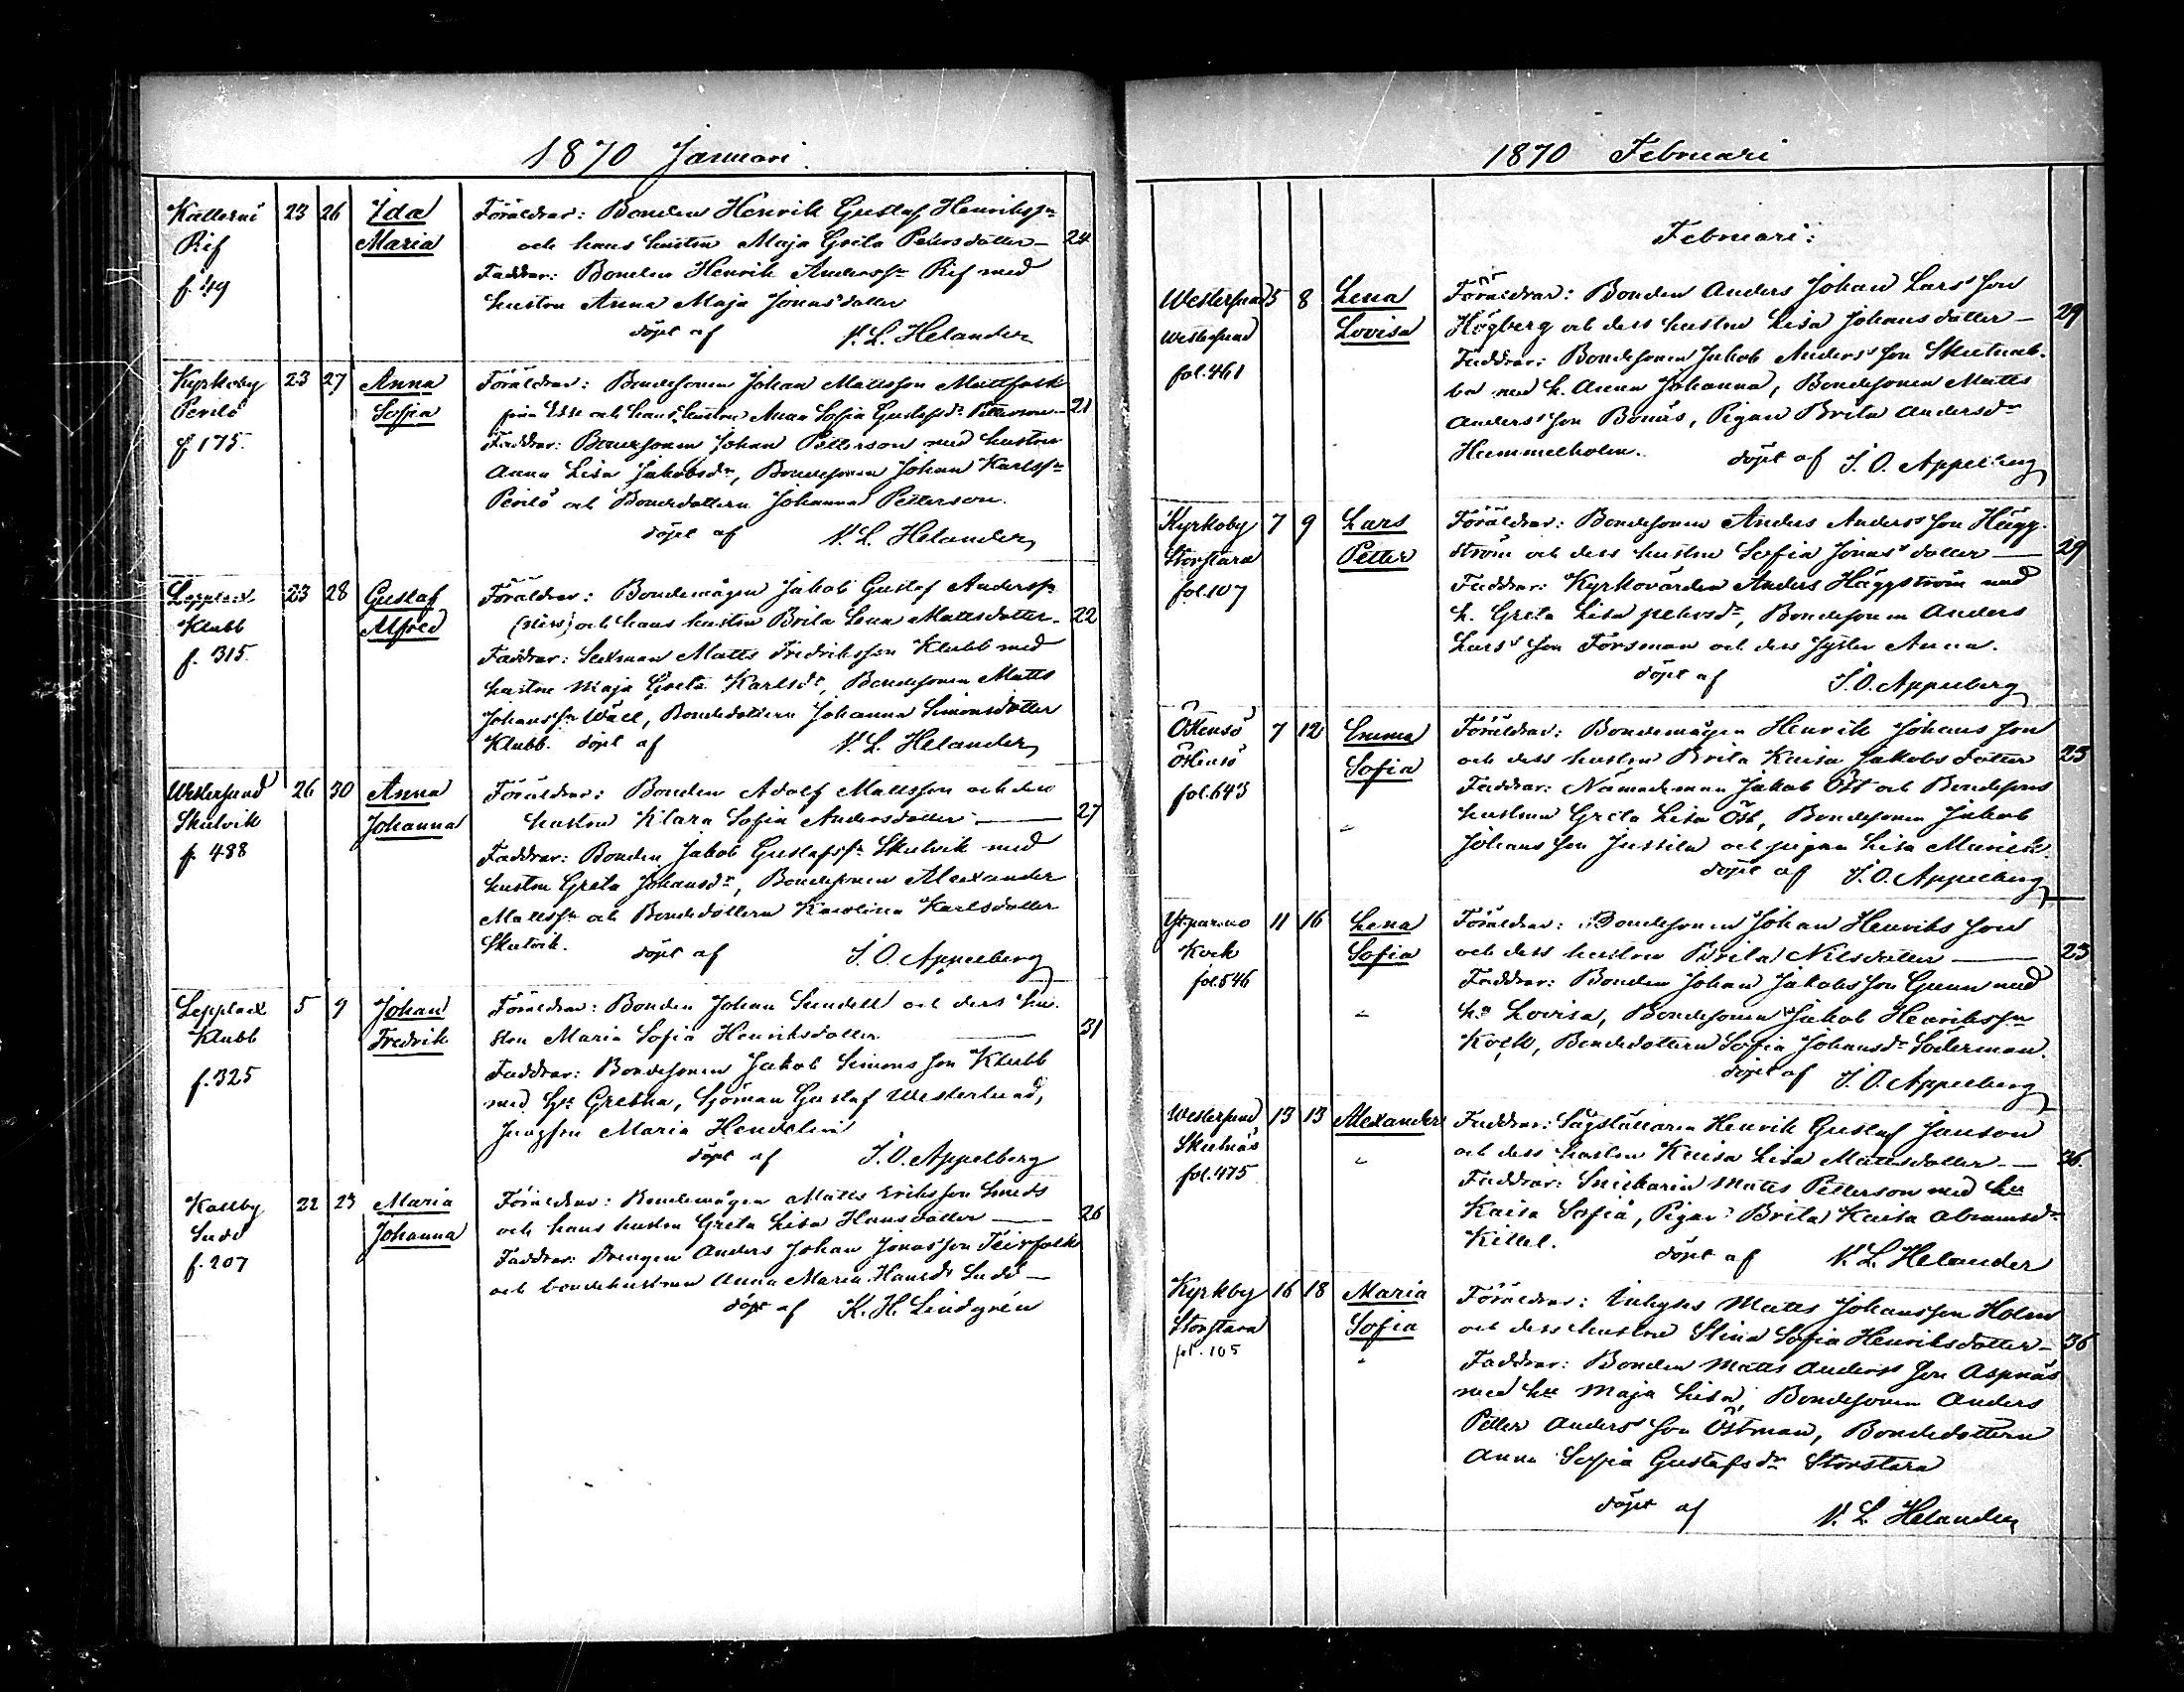 1870 Januari.
Källerni 23 26 Ida Föräldrar: Bonden Henrik Gustaf Henrikss:n
Rif Maria och hans hustru Maja Greta Pehrsdotter — 24
Faddrar: Bonden Henrik Anderss:n Rif med
f. 49 hustru Anna Maja Jonasdotter
döpt af N. L. Helander
Kyrkoby 23 27 Anna Föräldrar: Bondesonen Johan Mattsson
Perilö Sofia från Esse och hans hustru Anna Sofia Gustafsd:r Petterson — 21
f. 175. Faddrar: Bondesonen Johan Petterson med hustru
Anna Lisa Jakobsd:r, Bondesonen Johan Karlss:n
Perilö och Bondedottern Johanna Petterson.
döpt af N. L. Helander
Lepplax 23 28 Gustaf Föräldrar: Bondemågen Jakob Gustaf Anderss:n
Klubb Alfred och hans hustru Brita Lena Mattsdotter — 22
f. 315. Faddrar: Sexman Matts Fredriksson Klubb med
hustru Maja Greta Karlsd:r, Bondesonen Matts
Johanss:n Wäll, Bondedottern Johanna Simonsdotter
Klubb. döpt af N. L. Helander
Westersund 26 30 Anna Föräldrar: Bonden Adolf Mattsson och dess
Skutvik Johanna hustru Klara Sofia Andersdotter — 27
f. 488 Faddrar: Bonden Jakob Gustafss:n Skutvik med
hustru Greta Johansd:r, Bondesonen Alexander
Mattss:n och Bondedottern Karolina Karlsdotter
Skutvik. döpt af J. O. Appelberg
Lepplax 5 9 Johan Föräldrar: Bonden Johan Sundell och dess hu-
Klubb Fredrik stru Maria Sofia Henriksdotter — 31
f. 325 Faddrar: Bondesonen Jakob Simonsson Klubb
med h:u Gretha, Sjöman Gustaf Westerlund,
Jungfru Maria Hendelin
döpt af J. O. Appelberg
Kållby 22 23 Maria Föräldrar: Bondemågen Matts Eriksson Smeds
Sudd Johanna och hans hustru Greta Lisa Hansdotter — 26
f. 207 Faddrar: Drengen Anders Johan Jonasson Teirfolk
och bondehustrun Anna Maria Hansd:r Sudd —
döpt af K. H. Lindgrén
1870 Februari
Februari:
Westersund 5 8 Lena Föräldrar: Bonden Anders Johan Larsson
Westersund Lovisa Högberg och dess hustru Lisa Johansdotter — 29
fol. 461 Faddrar: Bondesonen Jakob Andersson Skutnab-
ba med h. Anna Johanna, Bondesonen Matts
Andersson Bonäs, Pigan Brita Andersd:r
Hummelholm. döpt af J. O. Appelberg
Kyrkoby 7 9 Lars Föräldrar: Bondesonen Anders Andersson Hägg-
Storstara Petter ström och dess hustru Sofia Jonasdotter — 29
fol. 107 Faddrar: Kyrkovärden Anders Häggström med
h. Greta Lisa Pehrsd:r, Bondesonen Anders
Larsson Forsman och dess syster Anna.
döpt af J. O. Appelberg
Östensö 7 12 Emma Föräldrar: Bondemågen Henrik Johansson
Östensö Sofia och dess hustru Brita Kaisa Jakobsdotter 25
fol. 643 Faddrar: Nämndeman Jakob Öst och Bondesons
hustrun Greta Lisa Öst, Bondesonen Jakob
Johansson Jussila och pigan Lisa
döpt af J. O. Appelberg
Ytterparmo 11 16 Lena Föräldrar: Bondesonen Johan Henriksson
Kock Sofia och dess hustru Brita Nilsdotter — 23
fol. 546 Faddrar: Bonden Johan Jakobsson Gunn med
h:u Lovisa, Bondesonen Jakob Henrikss:n
Kock, Bondedottern Sofia Johansd:r Söderman.
döpt af J. O. Appelberg
Westersund 13 13 Alexander Faddrar: Sågställaren Henrik Gustaf Janson
Skutnäs och dess hustru Kaisa Lisa Mattsdotter — 36.
fol. 475 Faddrar: Snickarin Matts Petterson med h:u
Kaisa Sofia, Pigan Brita Kaisa Abramsd:r
Kittel. döpt af N. L. Helander
Kyrkby 16 18 Maria Föräldrar: Inhyses Matts Johansson Holm
Storstara Sofia och dess hustru Stina Sofia Henriksdotter — 36
fol. 105 Faddrar: Bonden Matts Andersson Aspnäs
med h:u Maja Lisa, Bondesonen Anders
Petter Andersson Östman, Bondedottern
Anna Sofia Gustafsd:r Storstara
döpt af N. L. Helander